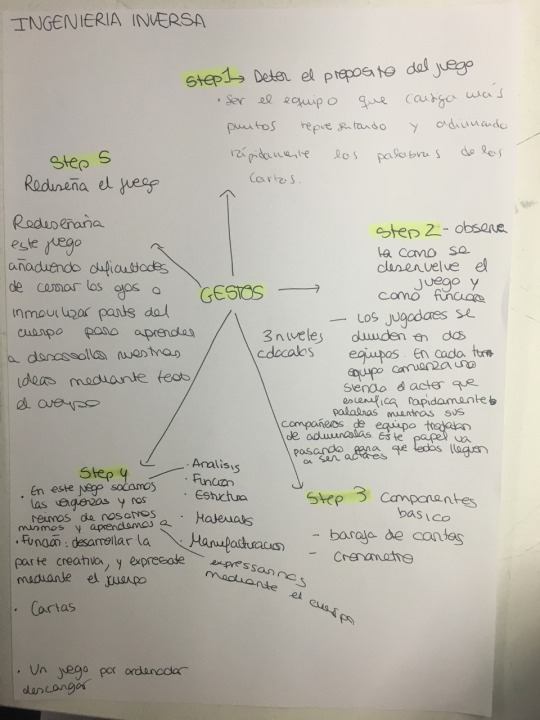 INGENIERIA INVERSA
Step 1 → Deter el proposito del juego
· Ser el equipo que consiga más
puntos representando y adivinando
rápidamente las palabras de las
cartas.
Step 5
Rediseña el juego
Rediseñaria
este juego
añadiendo dificultades
de cerrar los ojos o
inmovilizar parte del
cuerpo para aprender
a desarrollar nuestras
ideas mediante todo
el cuerpo
GESTOS
Step 2 - observa
la como se
desenvuelve el
juego y
como funciona
3 niveles
— Los jugadores se
dividen en dos
equipos. En cada turno
equipo comienza uno
siendo el actor que
escenifica rapidamente
palabras mientras sus
compañeros de equipo tratan
de adivinarlas Este papel va
pasando para que todos lleguen
a ser actores
Step 3 Componentes
basico
- baraja de cartas
- cronometro
Step 4
· Analisis
· Funcion
· Estructura
· Materials
· Manufacturacion
· En este juego sacamos
las vergüenzas y nos
reimos de nosotros
mismos y aprendemos a
expresarnos
mediante el cuerpo
· Función: desarrollar la
parte creativa, y expresate
mediante el cuerpo
· Cartas
· Un juego por ordenador
descargar